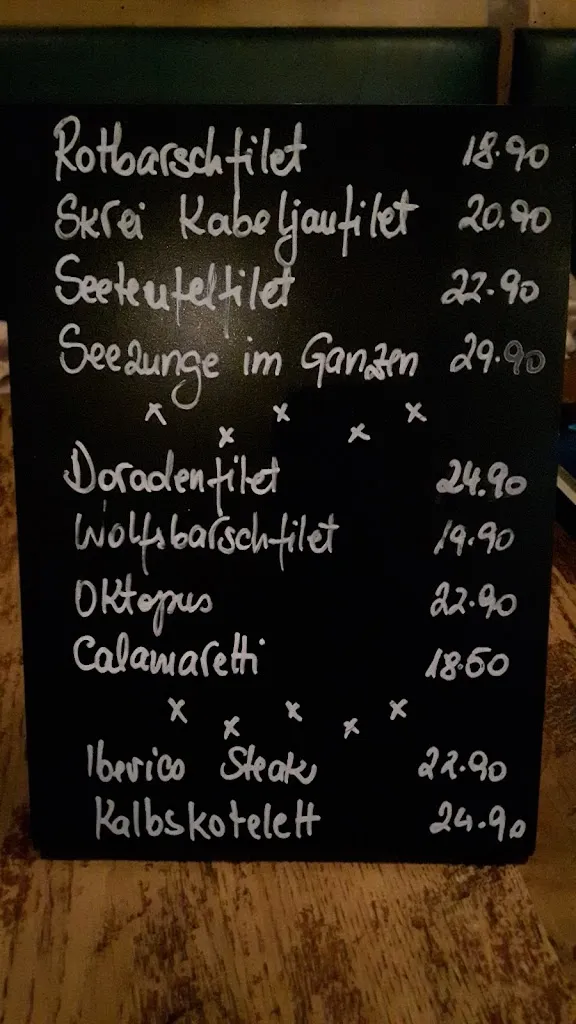 Rotbarschfilet 18.90
Skrei Kabeljaufilet 20.90
Seeteufelfilet 22.90
Seezunge im Ganzen 29.90
x x x x x
Doradenfilet 24.90
Wolfsbarschfilet 19.90
Oktopus 22.90
Calamaretti 18.50
x x x x x
Iberico Steak 22.90
Kalbskotelett 24.90